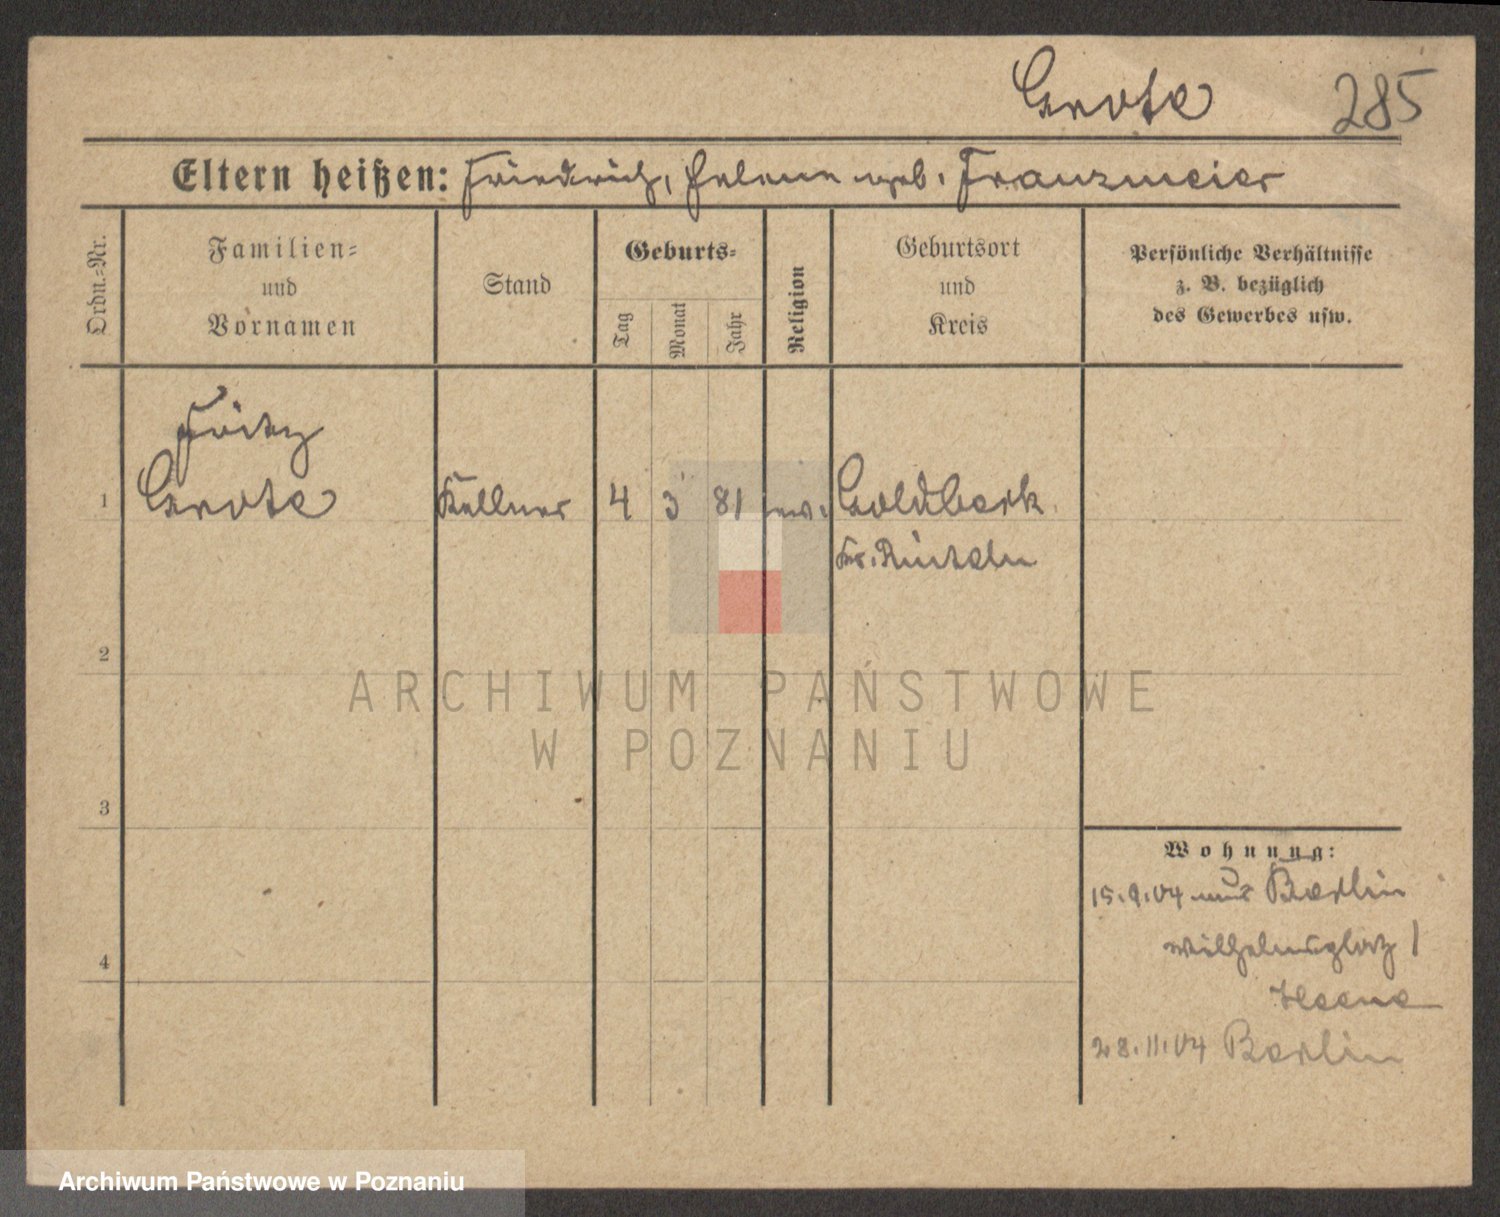 Grote 285
Eltern heißen: Friedrich, Helene geb. Franzmeier
Ordn.-Nr.
Familien- und Vornamen
Stand
Geburts-
Tag
Monat
Jahr
Religion
Geburtsort und Kreis
Persönliche Verhältnisse z. B. bezüglich des Gewerbes usw.
Fritz
1 Grote Kellner 4 3 81 ev. Goldbeck
Kr. Rinteln
2
3
4
Wohnung:
15.9.04 aus Berlin
Wilhelmsplatz 1
28.11.04 Berlin
ARCHIWUM PAŃSTWOWE
W POZNANIU
Archiwum Państwowe w Poznaniu